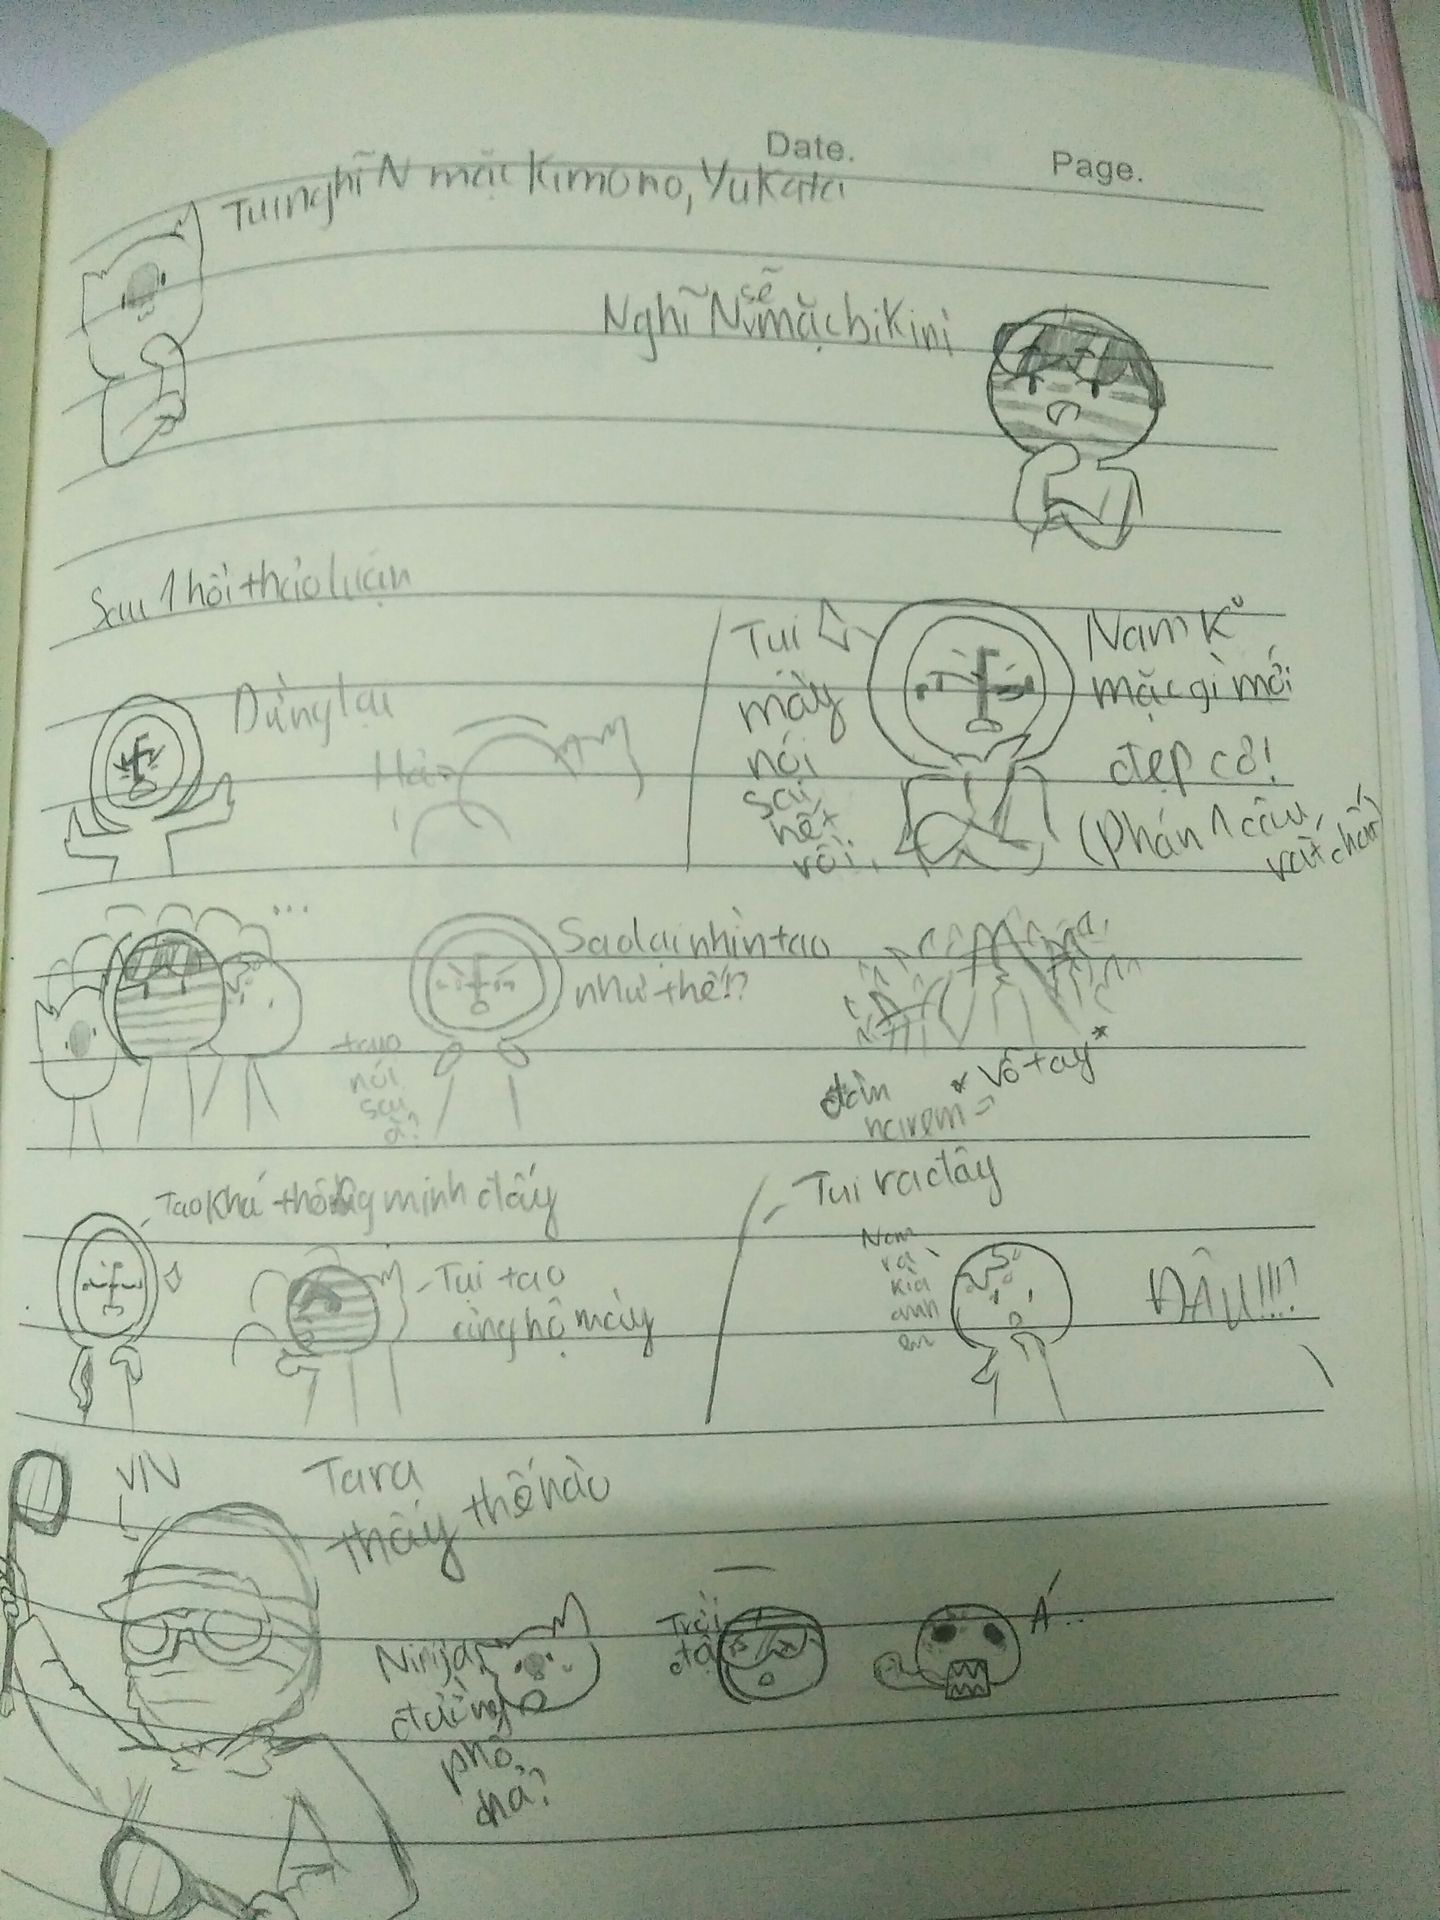 Date.
Page.
Tui nghĩ N mặc Kimono, Yukata
Nghĩ N sẽ mặc bikini
Sau 1 hồi thảo luận
Dừng lại
Hả
Tụi
mày
nói
sai
hết
rồi
Nam K°
mặc gì mới
đẹp cơ!
(Phán 1 câu,
rất chấn)
...
Sao lại nhìn tao
như thế!?
tao
nói
sai
à?
đàn
harem =>
*Vỗ tay*
Tao khá thông minh đấy
Tụi tao
ủng hộ mày
Tui ra đây
Nam
ra
kìa
anh
em
ĐÂU!!!?
VN
Tara
thấy thế nào
Ninja
đường
phố
hả?
Trời
Á..